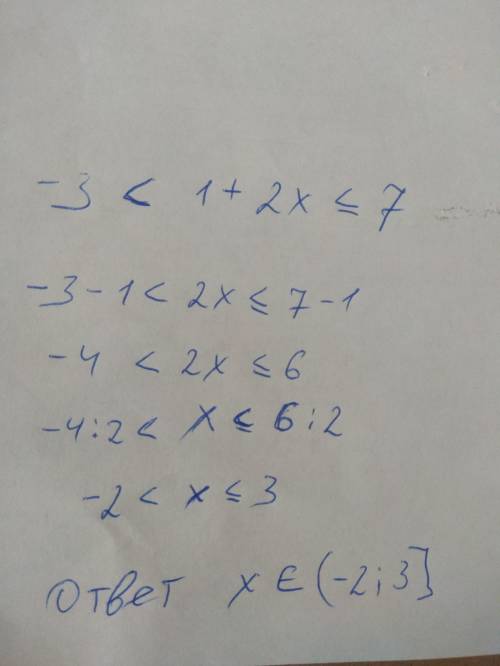 -3 < 1 + 2x ≤ 7
-3 - 1 < 2x ≤ 7 - 1
-4 < 2x ≤ 6
-4:2 < x ≤ 6:2
-2 < x ≤ 3
Ответ x ∈ (-2;3]